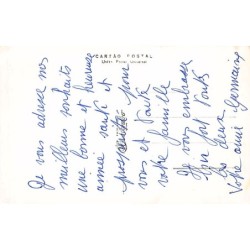 CARTÃO POSTAL
Je vous adresse mes
meilleurs souhaits
une bonne et heureuse
année santé et
prospérité pour
vous et toute
votre famille
Je vous embrasse
bien fort tous
les deux
Votre amie Germaine